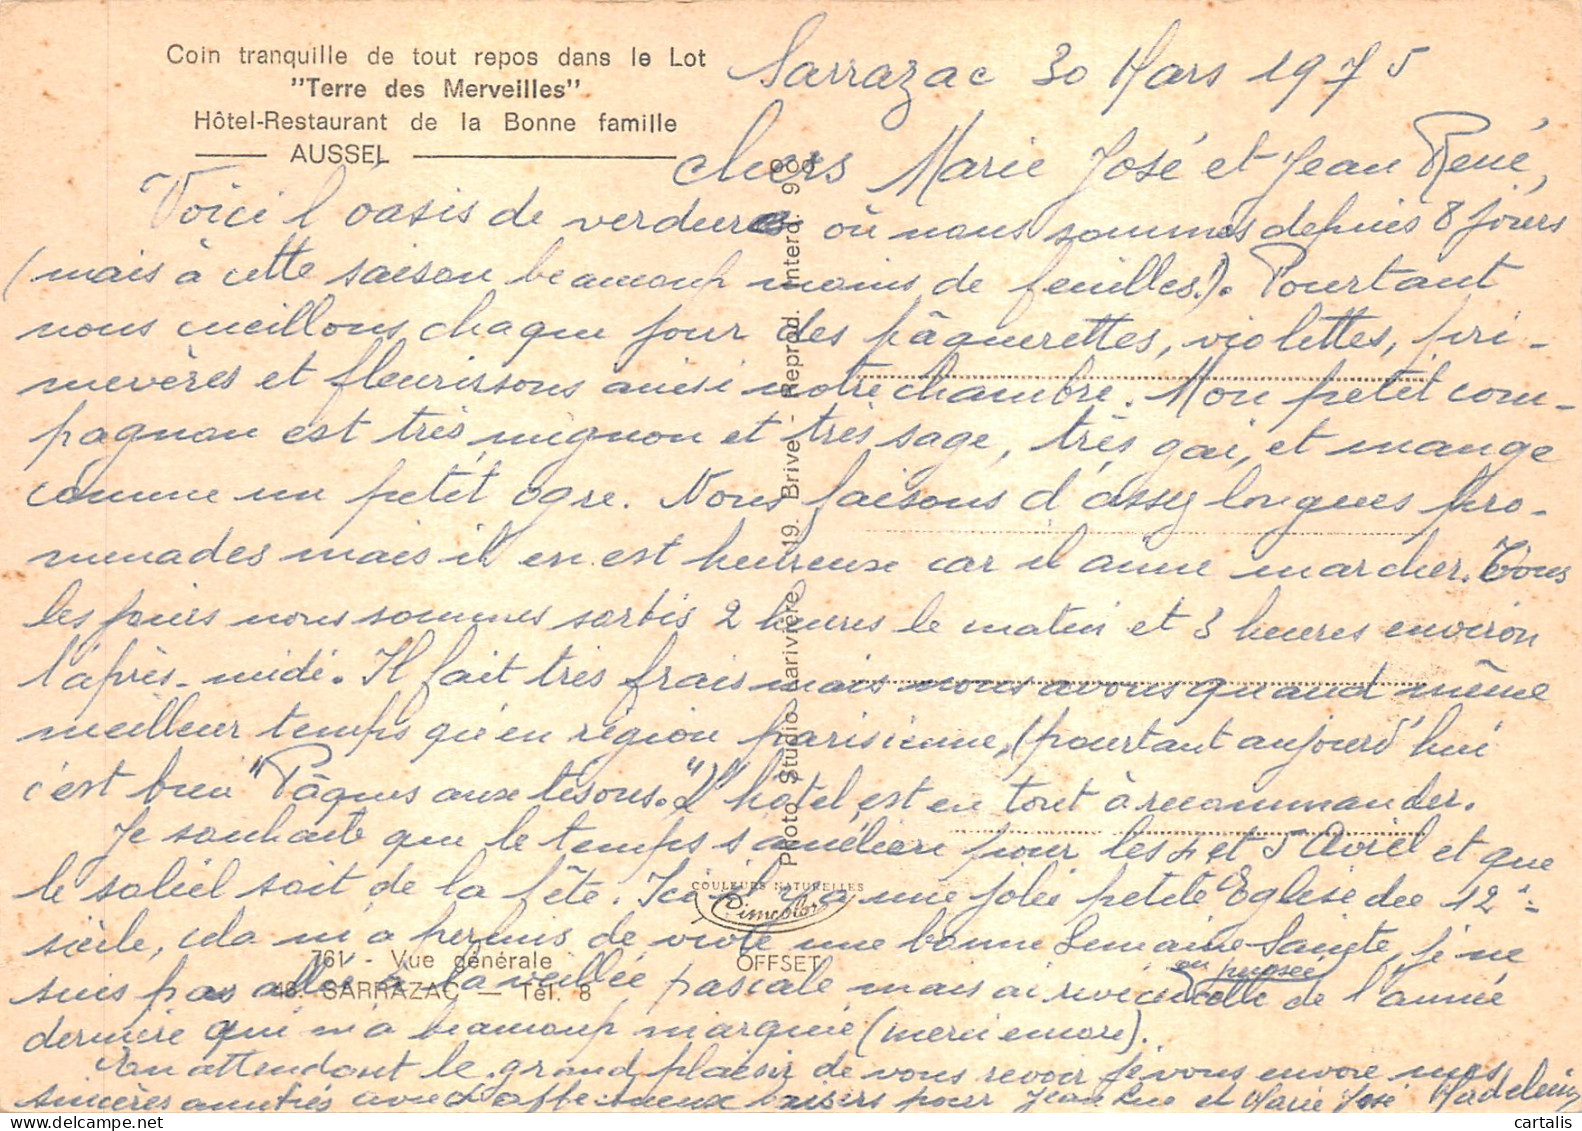 Coin tranquille de tout repos dans le Lot
"Terre des Merveilles"
Hôtel-Restaurant de la Bonne famille
AUSSEL
Sarrazac 30 Mars 1975
chers Marie José et Jean René,
Voici l'oasis de verdure où nous sommes depuis 8 jours
(mais à cette saison beaucoup moins de feuilles!). Pourtant
nous cueillons chaque jour des pâquerettes, violettes, pri-
mevères et fleurissons ainsi notre chambre. Mon petit com-
pagnon est très mignon et très sage, très gai, et mange
comme un petit ogre. Nous faisons d'assez longues pro-
menades mais il en est heureux car il aime marcher. Tous
les jours nous sommes sortis 2 heures le matin et 3 heures environ
l'après-midi. Il fait très frais mais nous avons quand même
meilleur temps qu'en région parisienne, (pourtant aujourd'hui
c'est bien "Pâques aux tisons.") L'hôtel est en tout à recommander.
Je souhaite que le temps s'améliore pour les 4 et 5 Avril et que
le soleil soit de la fête. Ici il y a une jolie petite Eglise du 12e
siècle, cela m'a permis de vivre une bonne Semaine Sainte, je ne
suis pas allée à la veillée pascale mais ai revécu en pensée celle de l'année
dernière qui m'a beaucoup marquée (merci encore).
En attendant le grand plaisir de vous revoir je vous envoie mes
sincères amitiés avec d'affectueux baisers pour Jean Luc et Marie José Madeleine
Photo Studio Larivière, 19. Brive - Reprod. Interd. 900
COULEURS NATURELLES
Cimcolor
OFFSET
761 - Vue générale
46. SARRAZAC — Tél. 8
cartalis